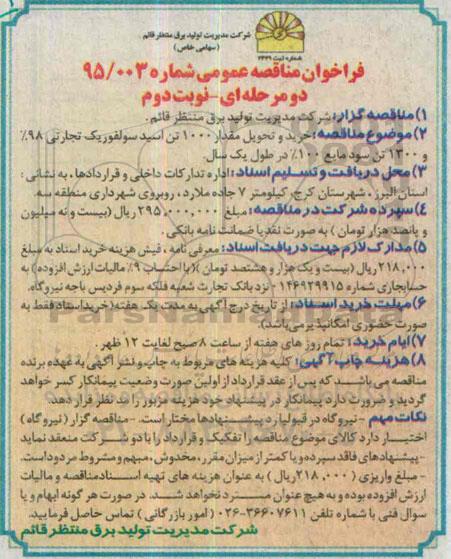 شرکت مدیریت تولید برق منتظر قائم
(سهامی خاص)
شماره ثبت ۲۳۳۹
فراخوان مناقصه عمومی شماره ۹۵/۰۰۳
دو مرحله ای - نوبت دوم
۱) مناقصه گزار: شرکت مدیریت تولید برق منتظر قائم.
۲) موضوع مناقصه: خرید و تحویل مقدار ۱۰۰۰ تن اسید سولفوریک تجارتی ۹۸٪
و ۱۳۰۰ تن سود مایع ۱۰۰٪ در طول یک سال.
۳) محل دریافت و تسلیم اسناد: اداره تدارکات داخلی و قراردادها، به نشانی:
استان البرز، شهرستان کرج، کیلومتر ۷ جاده ملارد، روبروی شهرداری منطقه سه.
۴) سپرده شرکت در مناقصه: مبلغ ۲۹۵,۰۰۰,۰۰۰ ریال (بیست و نه میلیون
و پانصد هزار تومان) به صورت نقد یا ضمانت نامه بانکی.
۵) مدارک لازم جهت دریافت اسناد: معرفی نامه، فیش هزینه خرید اسناد به مبلغ
۲۱۸,۰۰۰ ریال (بیست و یک هزار و هشتصد تومان) (با احتساب ۹٪ مالیات ارزش افزوده) به
حساب جاری شماره ۰۱۴۶۹۲۹۹۱۵ نزد بانک تجارت شعبه فلکه سوم فردیس باجه نیروگاه.
۶) مهلت خرید اسناد: از تاریخ درج آگهی به مدت یک هفته (خرید اسناد فقط به
صورت حضوری امکانپذیر می باشد).
۷) ایام خرید: تمام روز های هفته از ساعت ۸ صبح لغایت ۱۲ ظهر.
۸) هزینه چاپ آگهی: کلیه هزینه های مربوط به چاپ و نشر آگهی به عهده برنده
مناقصه می باشد که پس از عقد قرارداد از اولین صورت وضعیت پیمانکار کسر خواهد
گردید و ضرورت دارد پیمانکار در پیشنهاد خود هزینه مزبور را مد نظر قرار دهد.
نکات مهم - نیروگاه در قبول یا رد پیشنهادها مختار است. - مناقصه گزار (نیروگاه)
اختیار دارد کالای موضوع مناقصه را تفکیک و قرارداد را با دو شرکت منعقد نماید
- پیشنهادهای فاقد سپرده و یا کمتر از میزان مقرر، مخدوش، مبهم و مشروط مردود است.
- مبلغ واریزی (۲۱۸,۰۰۰ ریال) به عنوان هزینه های تهیه اسناد مناقصه و مالیات
ارزش افزوده بوده و به هیچ عنوان مسترد نخواهد شد. در صورت هر گونه ابهام و یا
سوال فنی با شماره تلفن ۳۶۶۰۷۶۱۱-۰۲۶ (امور بازرگانی) تماس حاصل فرمایید.
شرکت مدیریت تولید برق منتظر قائم
ParsNamadData